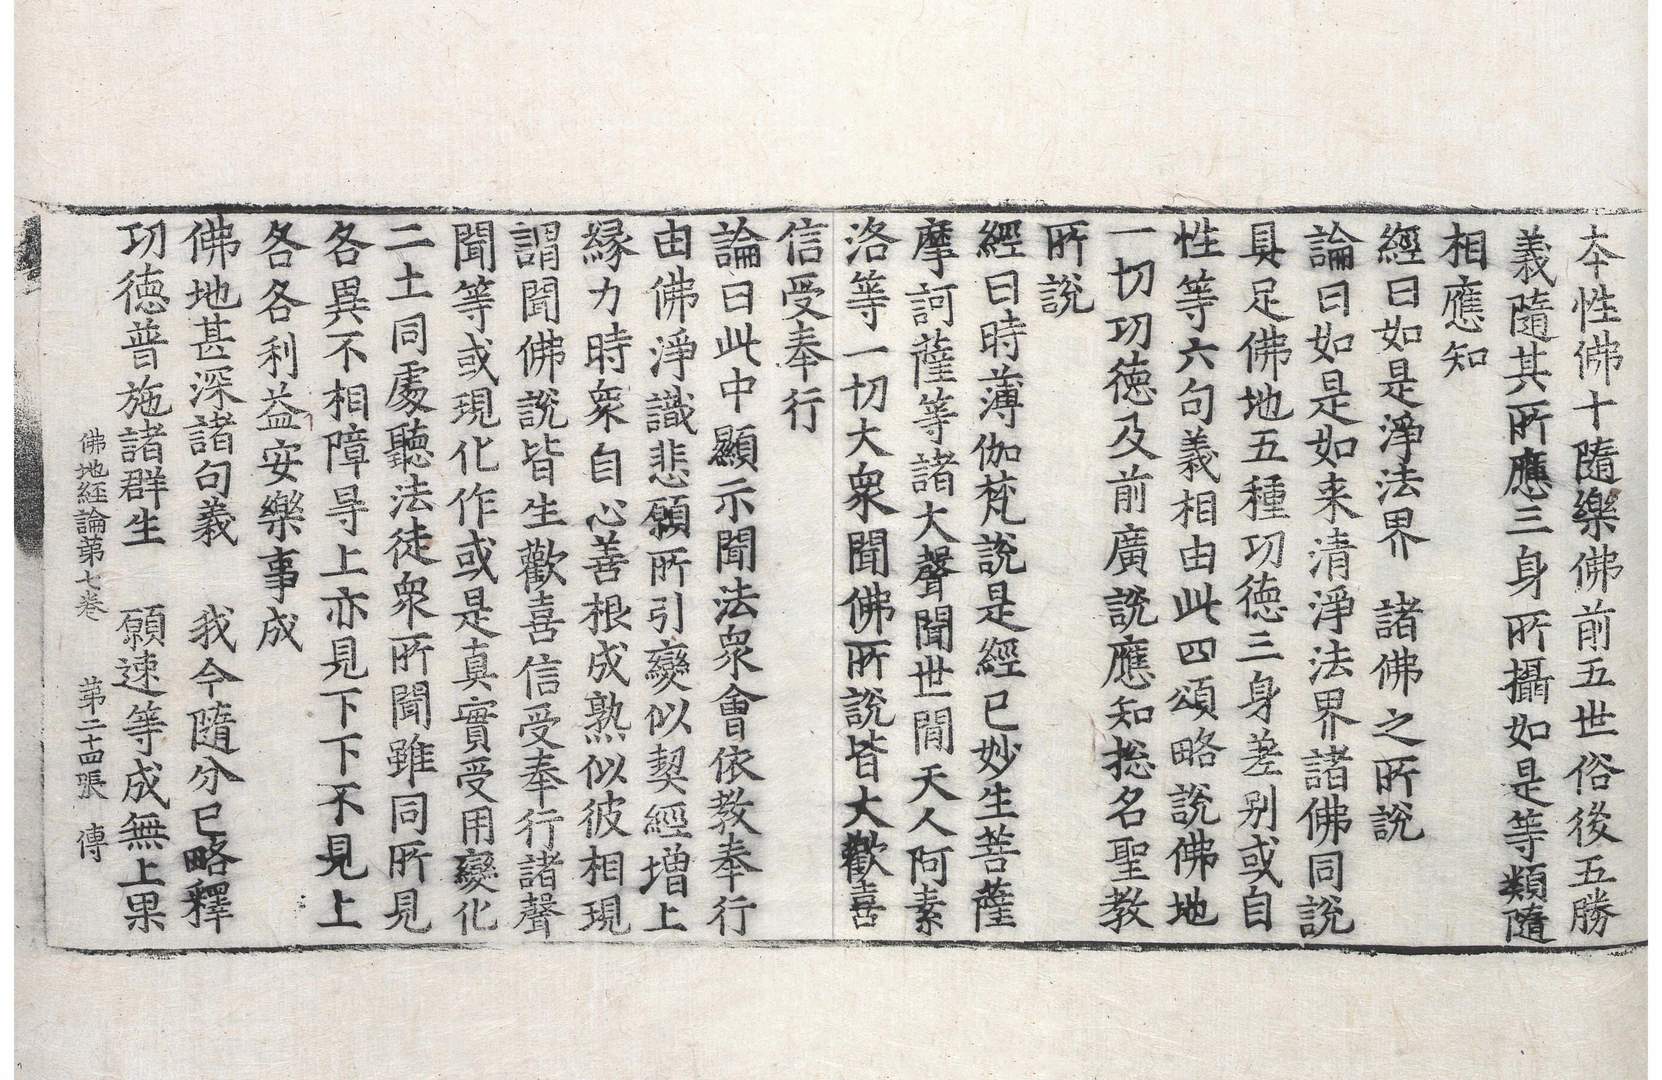 本性佛十隨樂佛前五世俗後五勝
義隨其所應三身所攝如是等類隨
相應知
經曰如是淨法界　諸佛之所說
論曰如是如来清淨法界諸佛同說
具足佛地五種功徳三身差别或自
性等六句義相由此四頌略說佛地
一切功徳及前廣說應知揔名聖教
所說
經曰時薄伽梵說是經已妙生菩薩
摩訶薩等諸大聲聞世閒天人阿素
洛等一切大衆聞佛所說皆大歡喜
信受奉行
論曰此中顯示聞法衆會依教奉行
由佛淨識悲願所引變似契經增上
縁力時衆自心善根成熟似彼相現
謂聞佛說皆生歡喜信受奉行諸聲
聞等或現化作或是真實受用變化
二土同處聽法徒衆所聞雖同所見
各異不相障㝵上亦見下下不見上
各各利益安樂事成
佛地甚深諸句義　我今隨分已略釋
功徳普施諸群生　願速等成無上果
佛地経論苐七巻　苐二十四張　傳